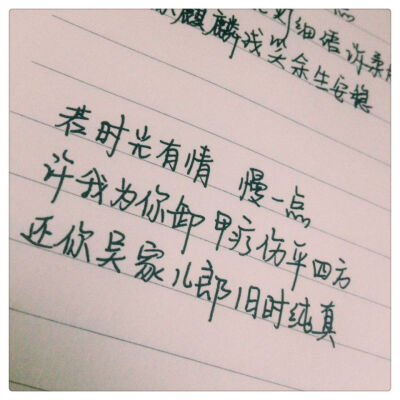 一点
好细语诉柔
麒麟浅笑余生安稳
若时光有情 慢一点
许我为你卸甲疗伤平四方
还你吴家儿郎旧时纯真